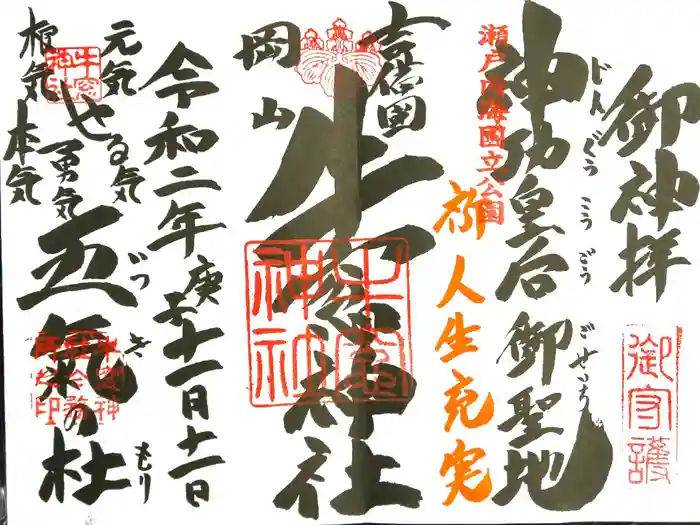 御神拝
御守護
神功皇后御聖地
じんぐうこうごう ごせいち
瀬戸内海國立公園
祈人生充実
吉備國
岡山
牛窓神社
牛窓神社
令和二年庚子十一月十一日
元気
やる気
勇気
根気
本気
五氣の杜
いつき もり
牛窓神社